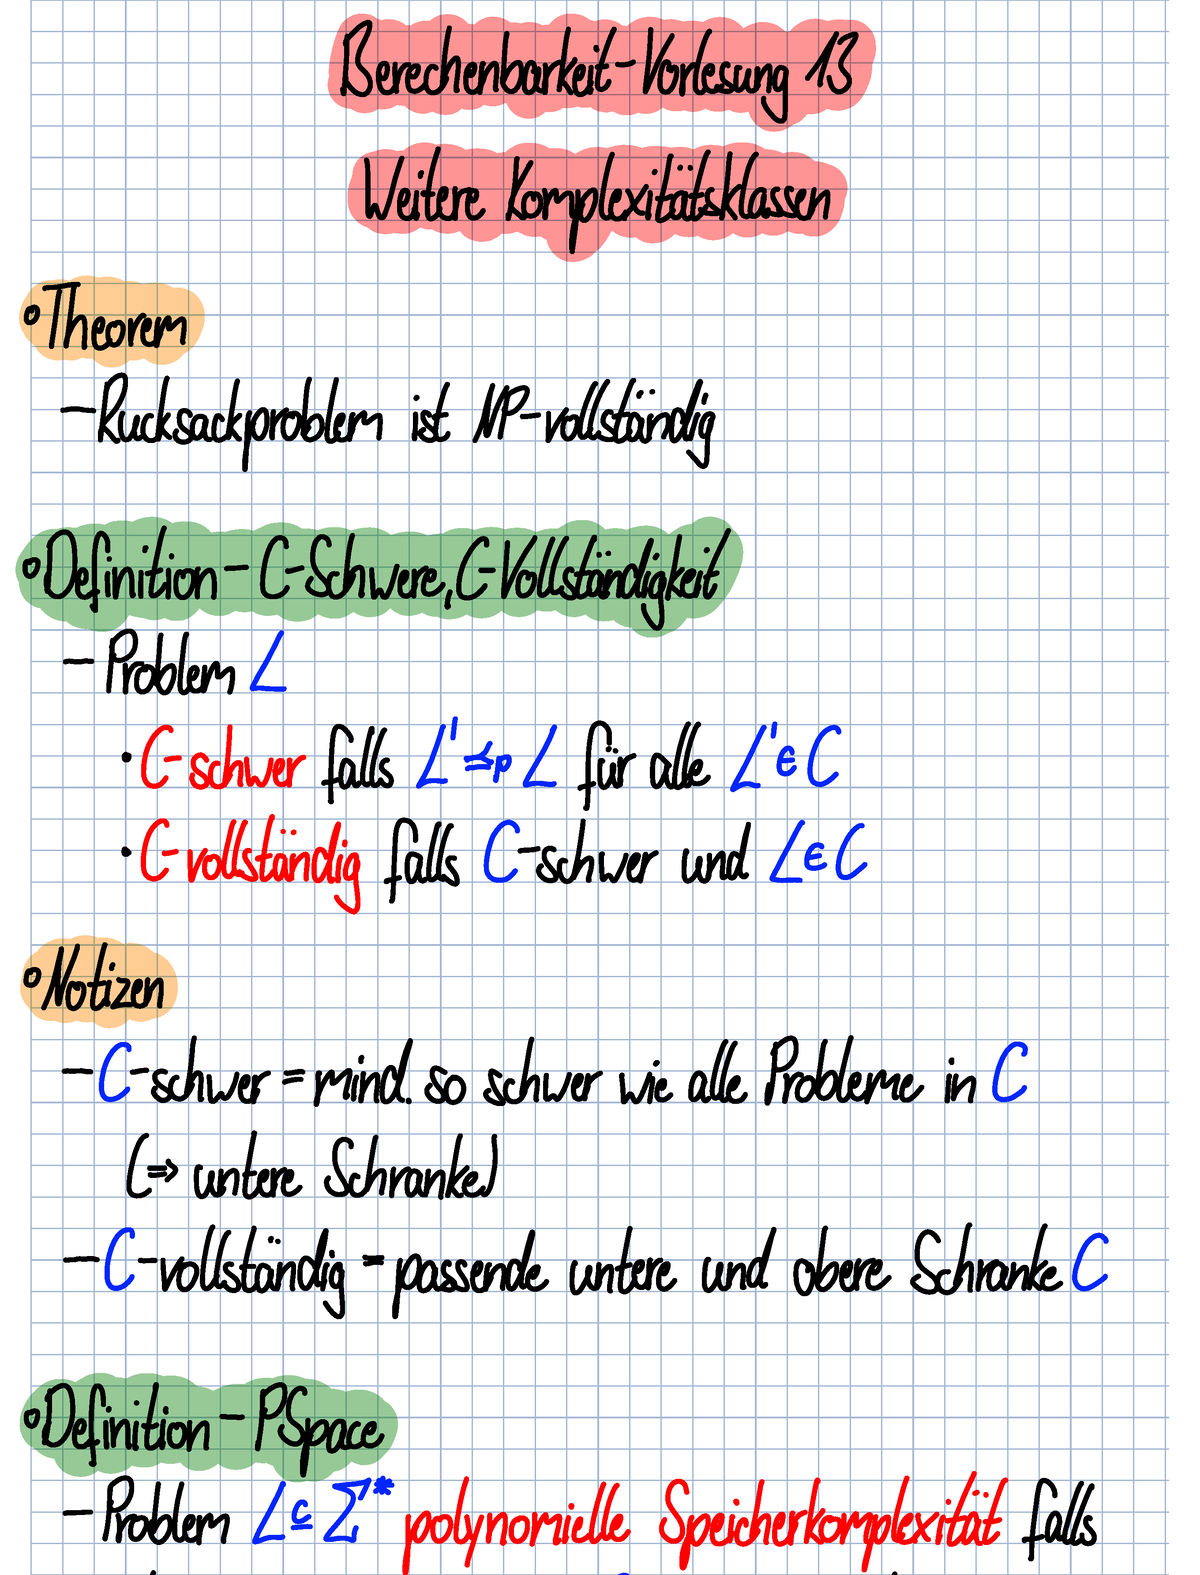 Berechenbarkeit-Vorlesung 13
Weitere Komplexitätsklassen
°Theorem
—Rucksackproblem ist NP-vollständig
°Definition — C-Schwere, C-Vollständigkeit
— Problem L
·C-schwer falls L' ≤p L für alle L' ∈ C
·C-vollständig falls C-schwer und L ∈ C
°Notizen
—C-schwer = mind. so schwer wie alle Probleme in C
(⇒ untere Schranke)
—C-vollständig = passende untere und obere Schranke C
°Definition — PSpace
— Problem L ⊆ Σ* polynomielle Speicherkomplexität falls